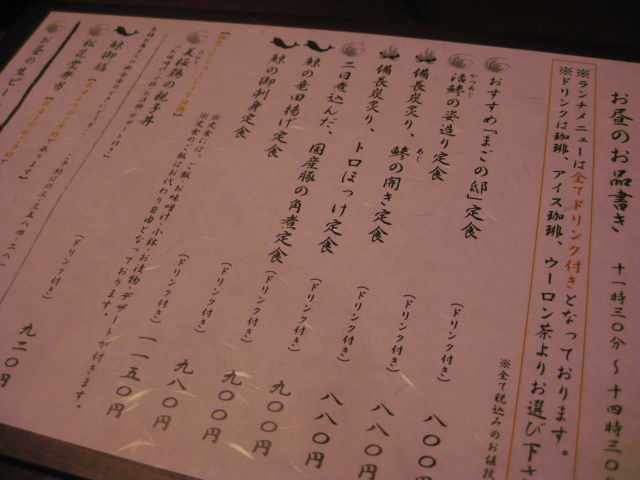 お昼のお品書き 十一時三〇分～十四時三〇
※ランチメニューは全てドリンク付きとなっております。
※ドリンクは珈琲、アイス珈琲、ウーロン茶よりお選び下さ
※全て税込みのお値段
おすすめ「まごの邸」定食 (ドリンク付き) 八〇〇円
活鯵の姿造り定食 (ドリンク付き) 八八〇円
かつあじ
備長炭炙り、鯵の開き定食 (ドリンク付き) 八八〇円
あじ
備長炭炙り、トロほっけ定食 (ドリンク付き) 八八〇円
二日煮込んだ、国産豚の角煮定食 (ドリンク付き) 九〇〇円
鯨の竜田揚げ定食 (ドリンク付き) 九〇〇円
鯨の御刺身定食 (ドリンク付き) 九八〇円
※定食には、ご飯、お味噌汁、小鉢、お漬物、デザートが付きます。
※定食のご飯はお代わり自由となっております。
美桜鶏の親子丼
鯨御膳 (ドリンク付き) 一一五〇円
松花堂弁当 (ドリンク付き) 九二〇円
お昼の生ビー